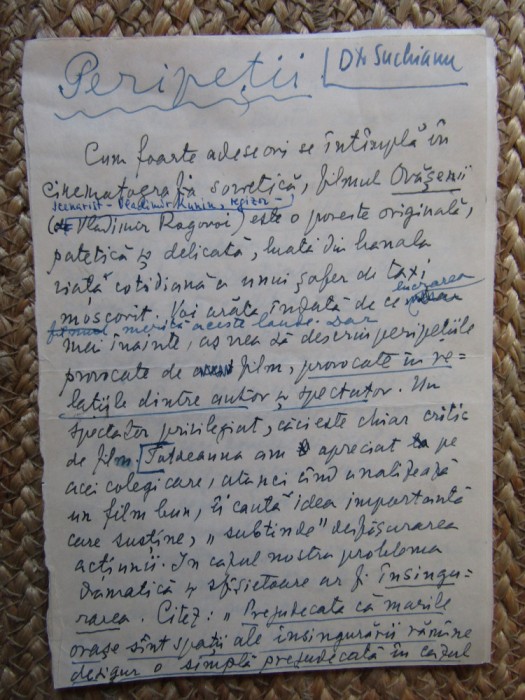 Peripeții
D.I. Suchianu
Cum foarte adeseori se întîmplă în
cinematografia sovietică, filmul Orășenii
scenarist - Vladimir Kunin, regizor -
(Vladimir Rogovoi) este o poveste originală,
patetică și delicată, luată din banala
viață cotidiană a unui șofer de taxi
moscovit. Voi arăta îndată de ce lucrarea
merită aceste laude. Dar
mai înainte, aș vrea să descriu peripețiile
provocate de film, provocate în re-
lațiile dintre autor și spectator. Un
spectator privilegiat, căci este chiar critic
de film. Totdeauna am apreciat pe
acei colegi care, atunci cînd analizează
un film bun, îi caută ideea importantă
care susține, „subtinde" desfășurarea
acțiunii. In cazul nostru problema
dramatică și sfîșietoare ar fi însingu-
rarea. Citez: „Prejudecata că marile
orașe sînt spații ale însingurării rămîne
desigur o simplă prejudecată în cazul